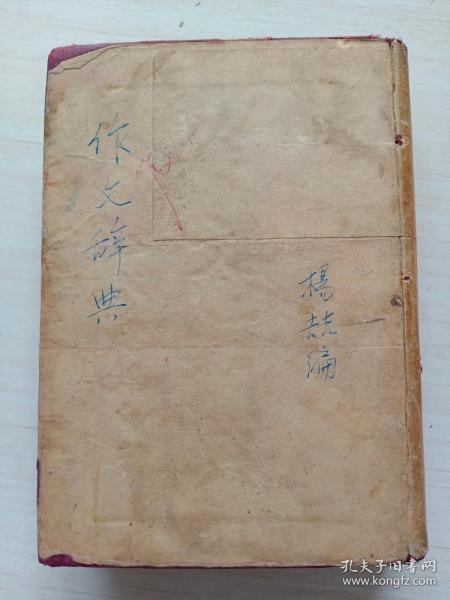 作文辞典
楊喆編
孔夫子旧书网
www.kongfz.com